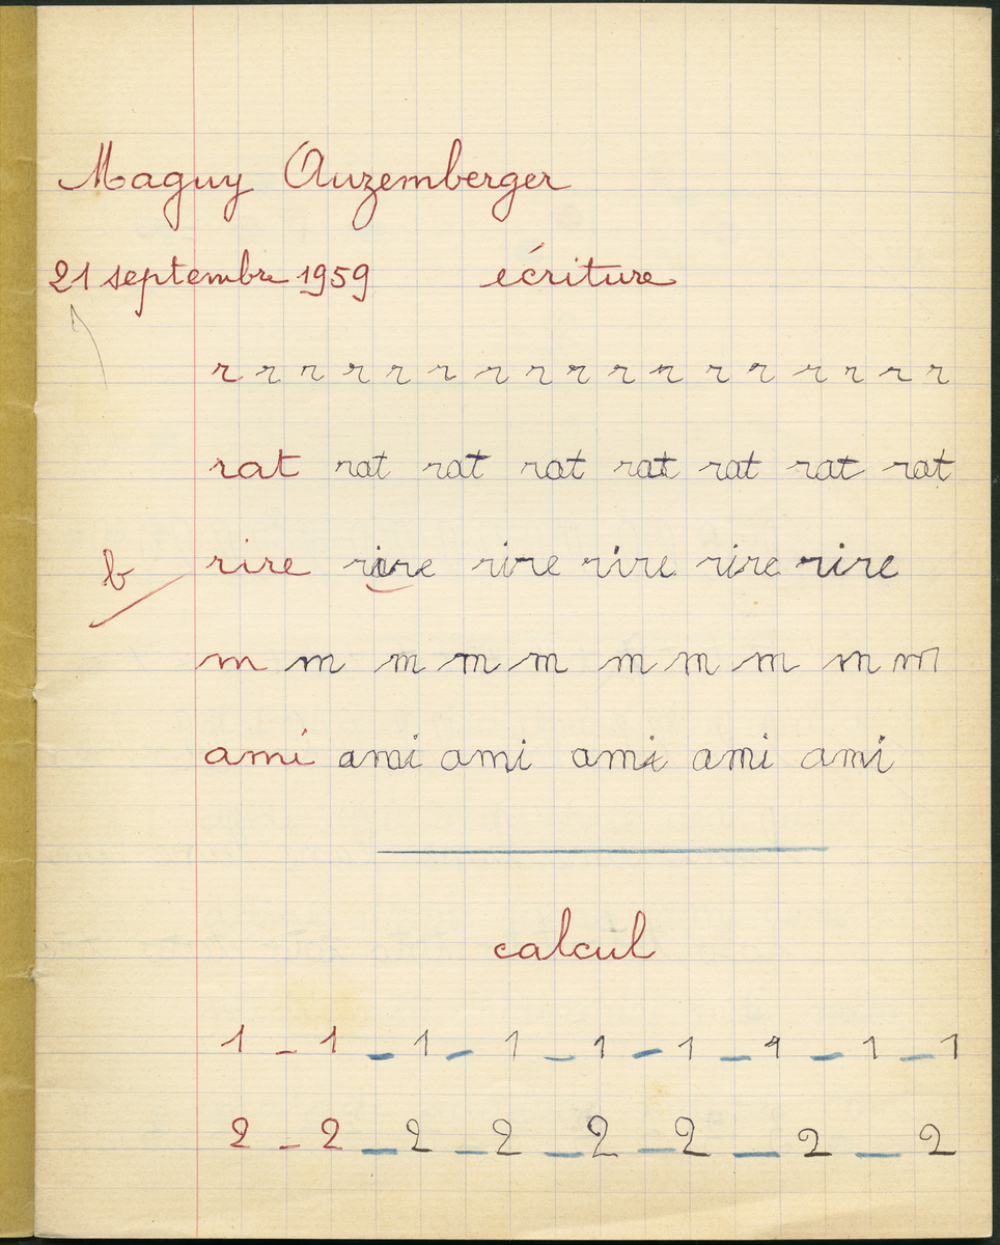 Maguy Auzemberger
21 septembre 1959 écriture
r r r r r r r r r r r r r r r r r
rat rat rat rat rat rat rat rat
b rire rire rire rire rire rire
m m m m m m m m m m
ami ami ami ami ami ami
calcul
1 - 1 - 1 - 1 - 1 - 1 - 1 - 1 - 1
2 - 2 - 2 - 2 - 2 - 2 - 2 - 2